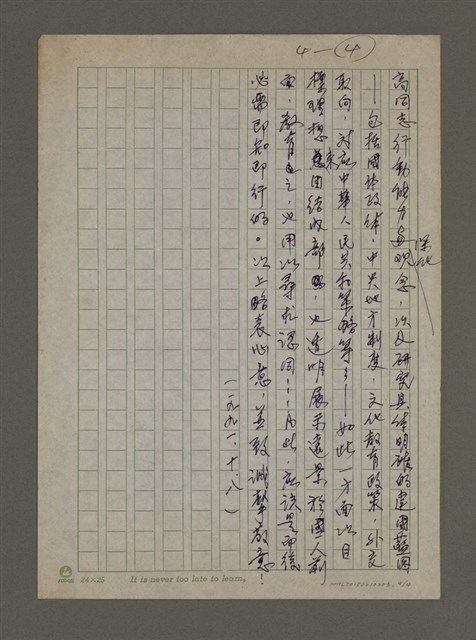 4—④
高同志行動能力與觀念，以及研究具体明確的建國藍圖
深化
——包括國体政体，中央地方制度，文化教育政策，外交
取向，對應中華人民共和策略等等——如此一方面以目
標理想來團結內部，也透明展示遠景於國人前
面，教育之，也用以尋求認同……凡此，應該是而後
必需即知即行的。以上略表心意，並致誠摯敬意！
（一九九一、十、八）
24×25 It is never too late to learn.